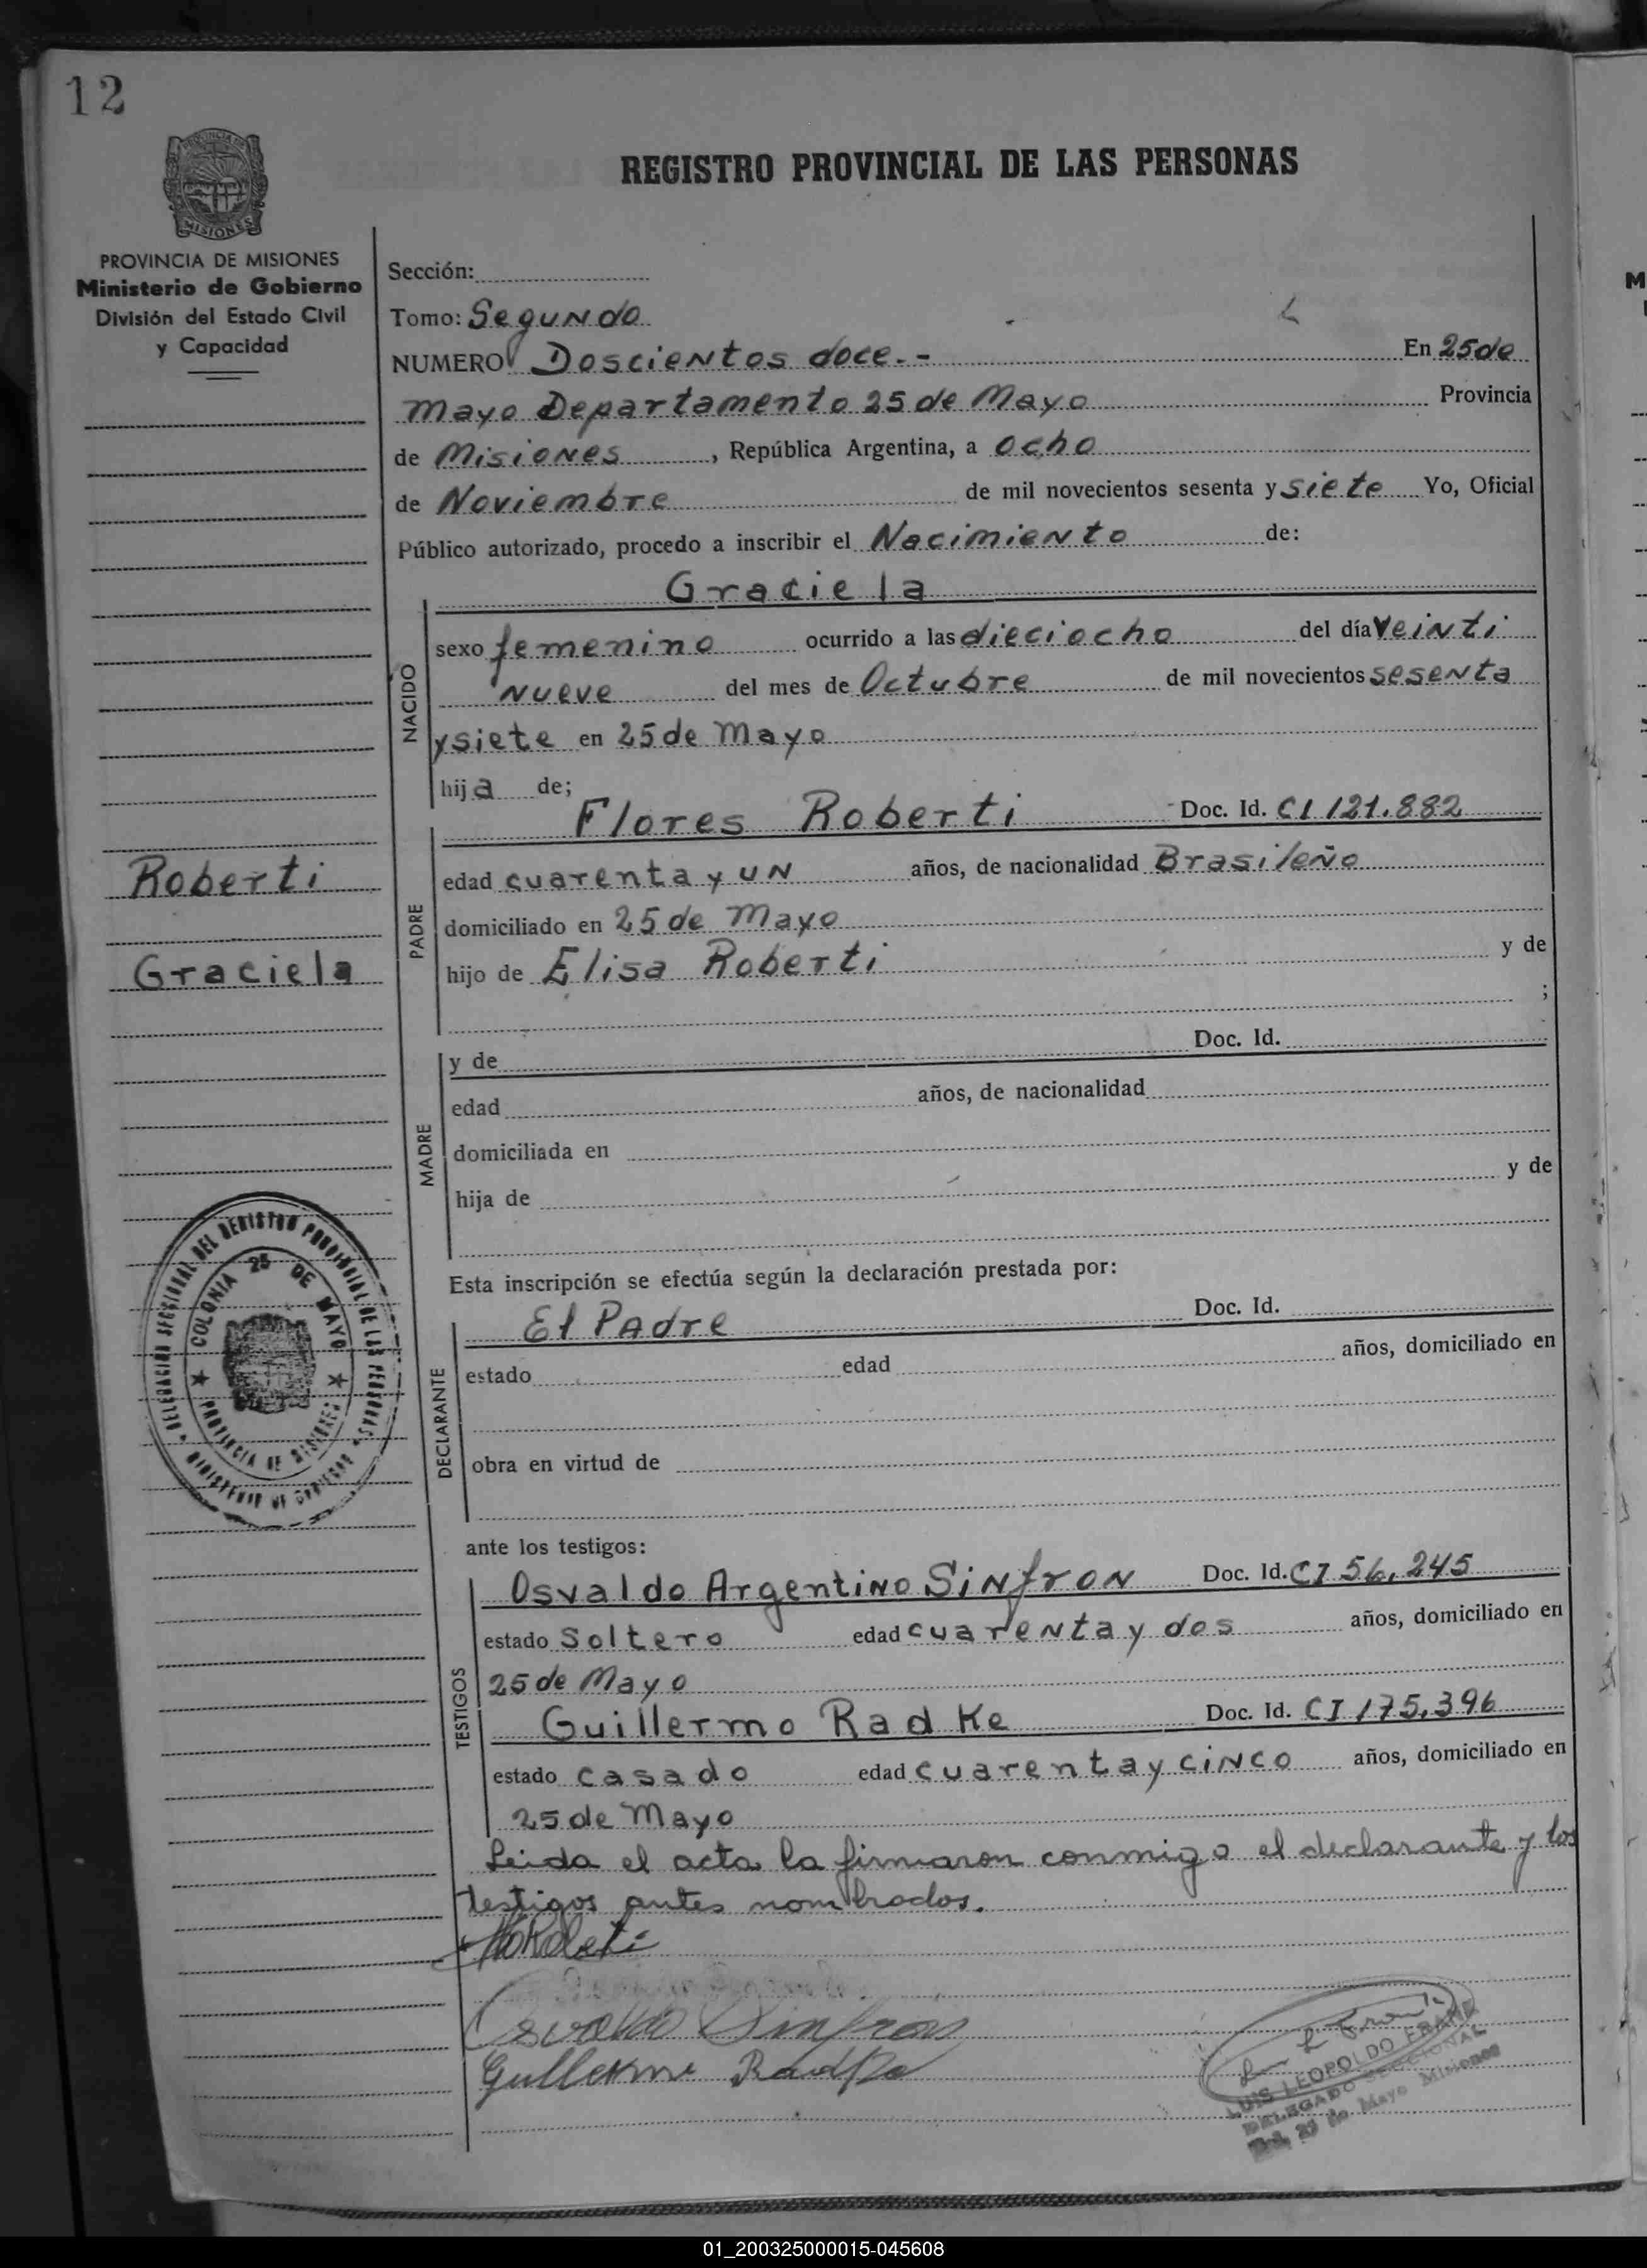 12
REGISTRO PROVINCIAL DE LAS PERSONAS
MISIONES
PROVINCIA DE MISIONES
Ministerio de Gobierno
División del Estado Civil
y Capacidad
Sección:
Tomo: Segundo
NUMERO Doscientos doce.- En 25 de
Mayo Departamento 25 de Mayo Provincia
de Misiones, República Argentina, a ocho
de Noviembre de mil novecientos sesenta y siete Yo, Oficial
Público autorizado, procedo a inscribir el Nacimiento de:
Graciela
NACIDO
sexo femenino ocurrido a las dieciocho del día veinti
nueve del mes de Octubre de mil novecientos sesenta
y siete en 25 de Mayo
hija de;
Flores Roberti Doc. Id. CI 121.882
PADRE
edad cuarenta y un años, de nacionalidad Brasileño
domiciliado en 25 de Mayo
hijo de Elisa Roberti y de
;
Roberti
Graciela
MADRE
y de Doc. Id.
edad años, de nacionalidad
domiciliada en
hija de y de
Esta inscripción se efectúa según la declaración prestada por:
DECLARANTE
El Padre Doc. Id.
estado edad años, domiciliado en
obra en virtud de
DELEGACION SECCIONAL DEL REGISTRO PROVINCIAL DE LAS PERSONAS
COLONIA 25 DE MAYO
PROVINCIA DE MISIONES
MINISTERIO DE GOBIERNO
ante los testigos:
TESTIGOS
Osvaldo Argentino Sinfron Doc. Id. CI 56,245
estado Soltero edad cuarenta y dos años, domiciliado en
25 de Mayo
Guillermo Radke Doc. Id. CI 175,396
estado casado edad cuarenta y cinco años, domiciliado en
25 de Mayo
Leida el acta la firmaron conmigo el declarante y los
testigos antes nombrados.
Osvaldo Sinfron
Guillermo Radke
LUIS LEOPOLDO
DELEGADO SECCIONAL
25 de Mayo Misiones
01_200325000015-045608